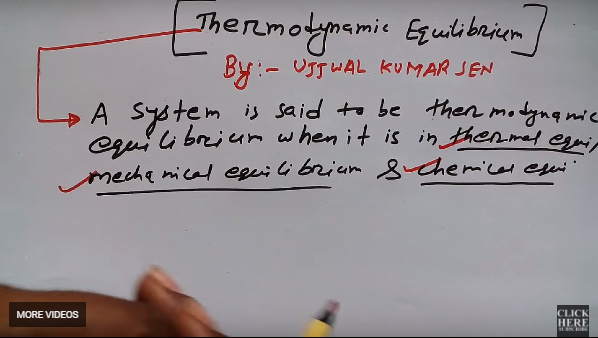 [Thermodynamic Equilibrium]
By:- UJJWAL KUMAR SEN
A system is said to be thermodynamic
equilibrium when it is in thermal equi,
mechanical equilibrium & chemical equi
MORE VIDEOS
CLICK
HERE
SUBSCRIBE